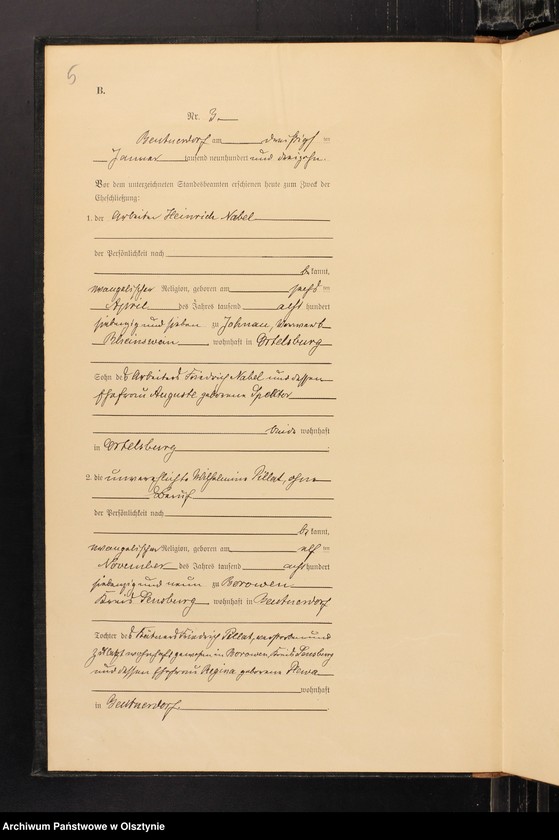 5
B.
Nr. 3
Beutnerdorf am dreißigsten
Januar tausend neunhundert und dreizehn.
Vor dem unterzeichneten Standesbeamten erschienen heute zum Zweck der
Eheschließung:
1. der Arbeiter Heinrich Nabel
der Persönlichkeit nach
bekannt,
evangelischer Religion, geboren am sechsten
April des Jahres tausend acht hundert
siebenzig und sieben zu Johnau, Vorwerk
, wohnhaft in Ortelsburg
Sohn des Arbeiters Friedrich Nabel und dessen
Ehefrau Auguste geborene Spektor
beide wohnhaft
in Ortelsburg
2. die unverehelichte Wilhelmine Pillat, ohne
Beruf
der Persönlichkeit nach
bekannt,
evangelischer Religion, geboren am elften
November des Jahres tausend acht hundert
siebenzig und neun zu Borowen
Kreis Sensburg wohnhaft in Beutnerdorf
Tochter des Kätners Friedrich Pillat, verstorben und
zuletzt wohnhaft gewesen in Borowen, Kreis Sensburg
und dessen Ehefrau Regina geborene
wohnhaft
in Beutnerdorf.
Archiwum Państwowe w Olsztynie